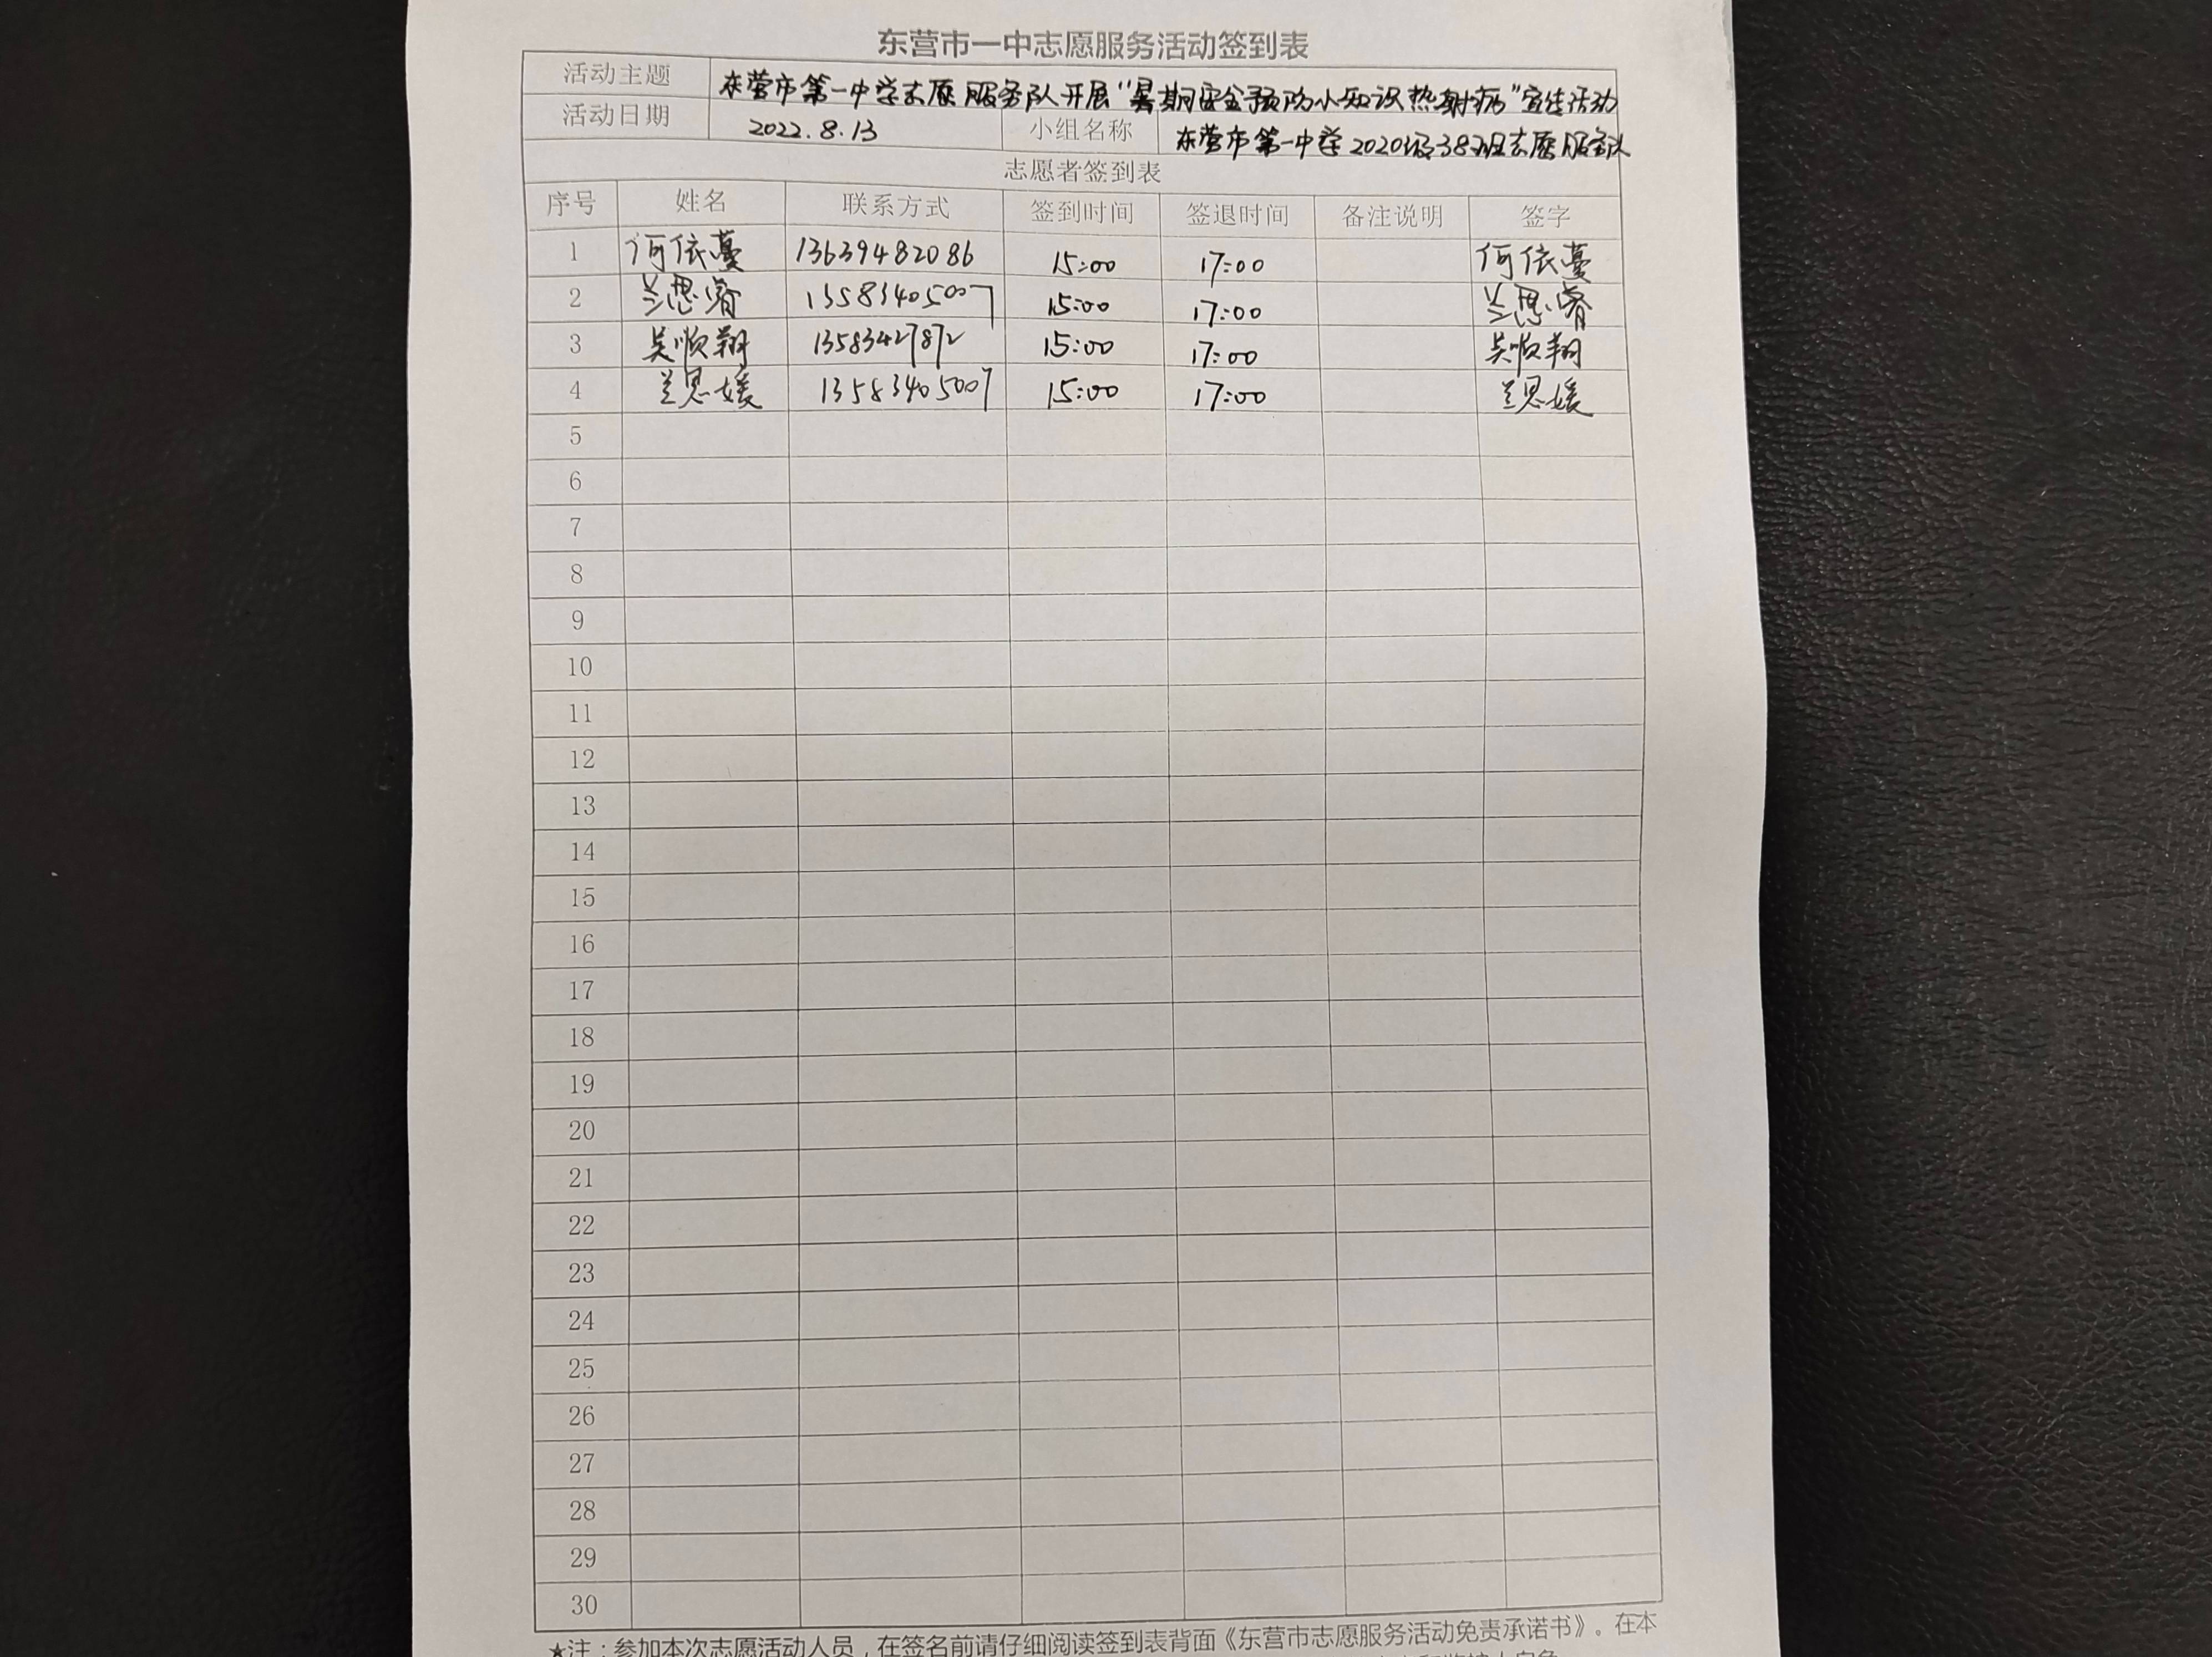 东营市一中志愿服务活动签到表
活动主题 东营市第一中学志愿服务队开展“暑期安全预防小知识热射病”宣传活动
活动日期 2022.8.13 小组名称 东营市第一中学2020级38班志愿服务队
志愿者签到表
序号 姓名 联系方式 签到时间 签退时间 备注说明 签字
1 何依蔓 13639482086 15:00 17:00 何依蔓
2 兰思睿 13583405007 15:00 17:00 兰思睿
3 吴顺翔 13583427872 15:00 17:00 吴顺翔
4 兰思媛 13583405007 15:00 17:00 兰思媛
5
6
7
8
9
10
11
12
13
14
15
16
17
18
19
20
21
22
23
24
25
26
27
28
29
30
★注：参加本次志愿活动人员，在签名前请仔细阅读签到表背面《东营市志愿服务活动免责承诺书》。在本